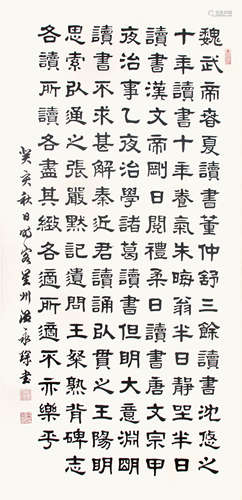 魏武帝春夏讀書董仲舒三餘讀書沈攸之
十年讀書十年養氣朱晦翁半日靜坐半日
讀書漢文帝剛日閱禮柔日讀書唐文宗甲
夜治事乙夜治學諸葛讀書但明大意淵明
讀書不求甚解秦以貫之王陽明
思索以通之張嚴默記遺問王粲熟背碑志
各讀所讀各盡其緻各適所適不亦樂乎
癸亥秋日時客星州永書